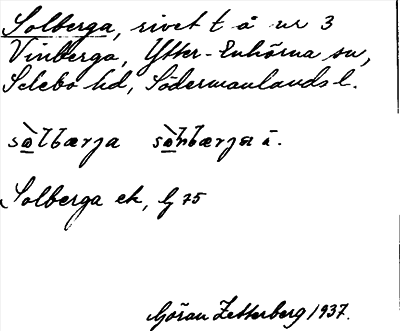 Solberga, rivet t å nr 3
Vinberga, Ytter-Enhörna sn,
Selebo hd, Södermanlands l.
sòlbærja sònbærja i.
Solberga ek, G 75
Göran Zetterberg 1937.